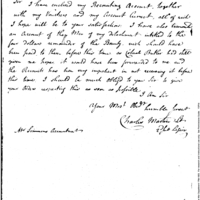 Sir I have enclosed my Recruiting Account, together
with my Vouchers and my Account Current, all of which
I hope will be to your satisfaction. I have also
an Account of the Men of my detachment intitled to the
four dollars remainder of the Bounty, which should have
been paid to them before this time as Colonel Butler did tell
given me hopes it would have been forwarded to me and
the Accounts has been very importunate in not receiving it before
this time I should be much obliged to you Sir to give
your orders respecting this as soon as possible.
I am Sir
Your Most Obdt.
humble Servt
Charles
Mr Simmons Accountant